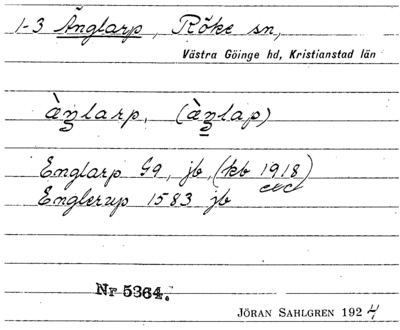 1-3 Änglarp, Röke sn,
Västra Göinge hd, Kristianstad län
àŋlarp, (àŋlap)
Englarp G9, jb, (kb 1918)
Englerup 1583 jb
Nr 5364.
JÖRAN SAHLGREN 1924